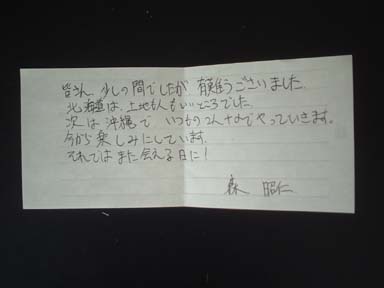 皆さん、少しの間でしたが有難うございました。
北海道は、土地も人もいいところでした。
次は沖縄で いつもの2人+αでやっていきます。
今から楽しみにしています。
それではまた会える日に!
森 昭仁